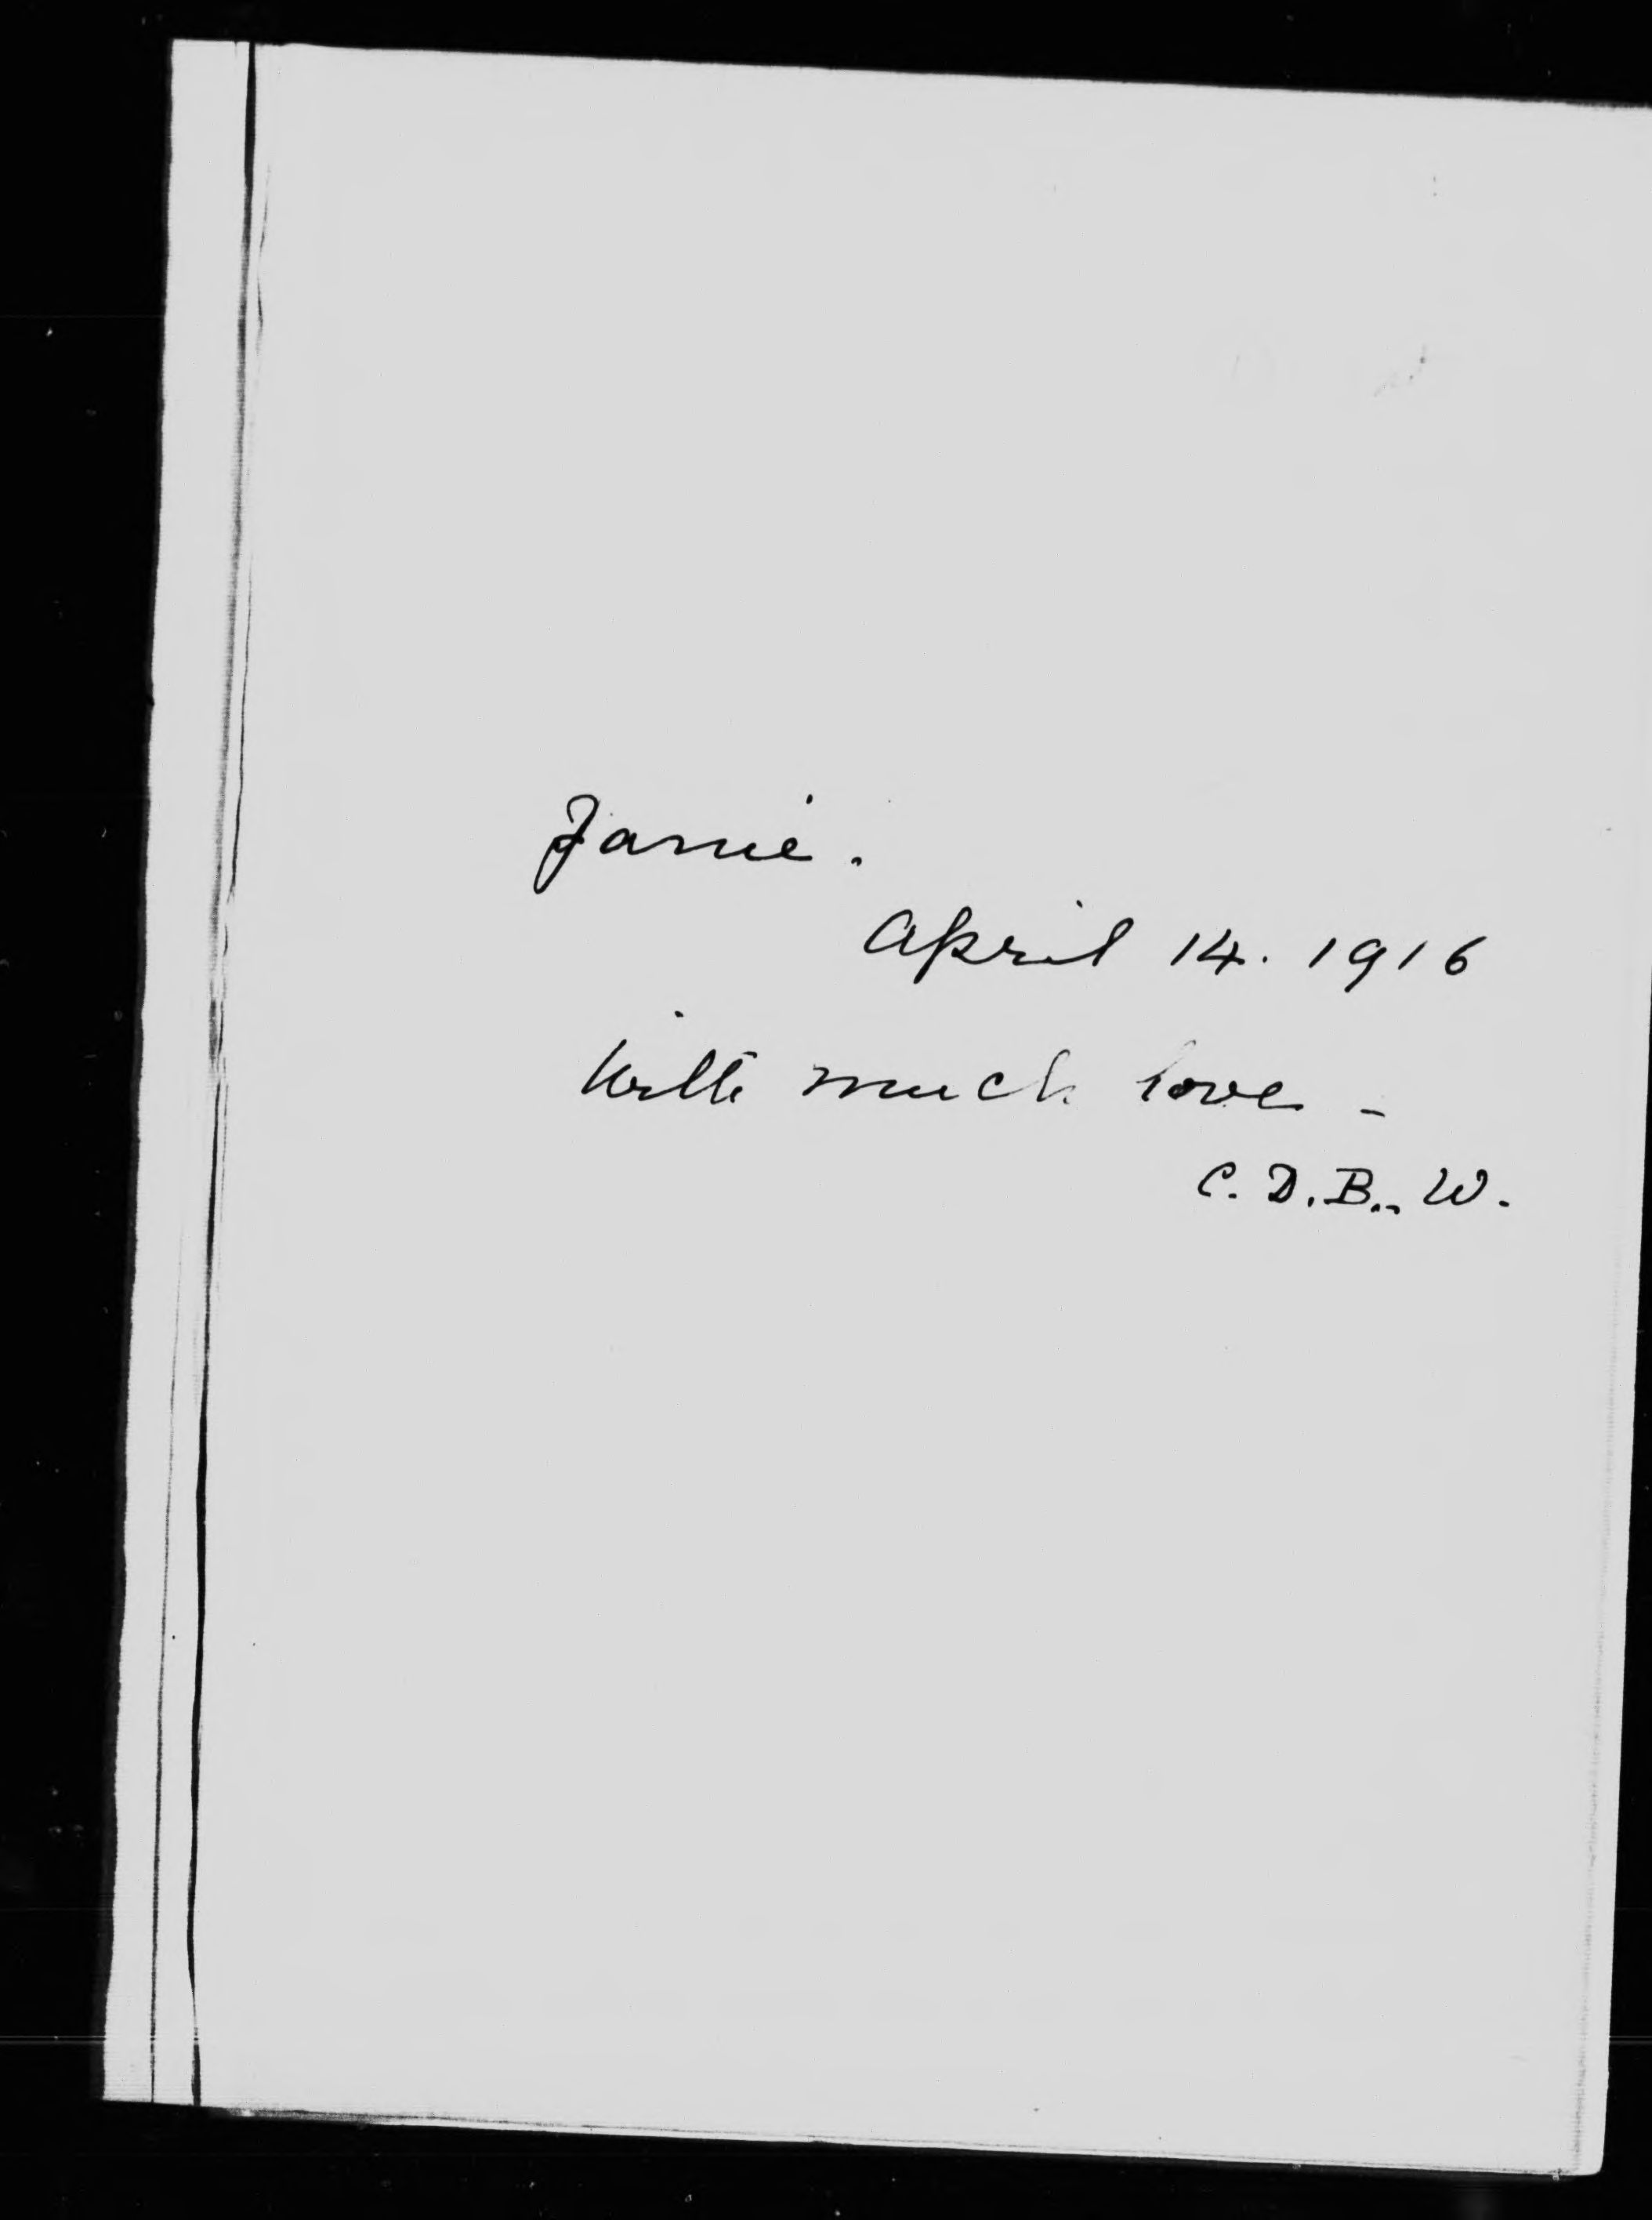 Janie.
April 14. 1916
With much love -
C. D. B. W.